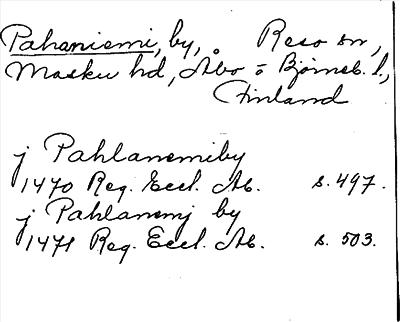 Pahaniemi, by, Reso sn,
Masku hd, Åbo o Björneb. l.,
Finland
j Pahlanemiby
1470 Reg. Eccl. Ab. s. 497.
j Pahlanemj by
1471 Reg. Eccl. Ab. s. 503.